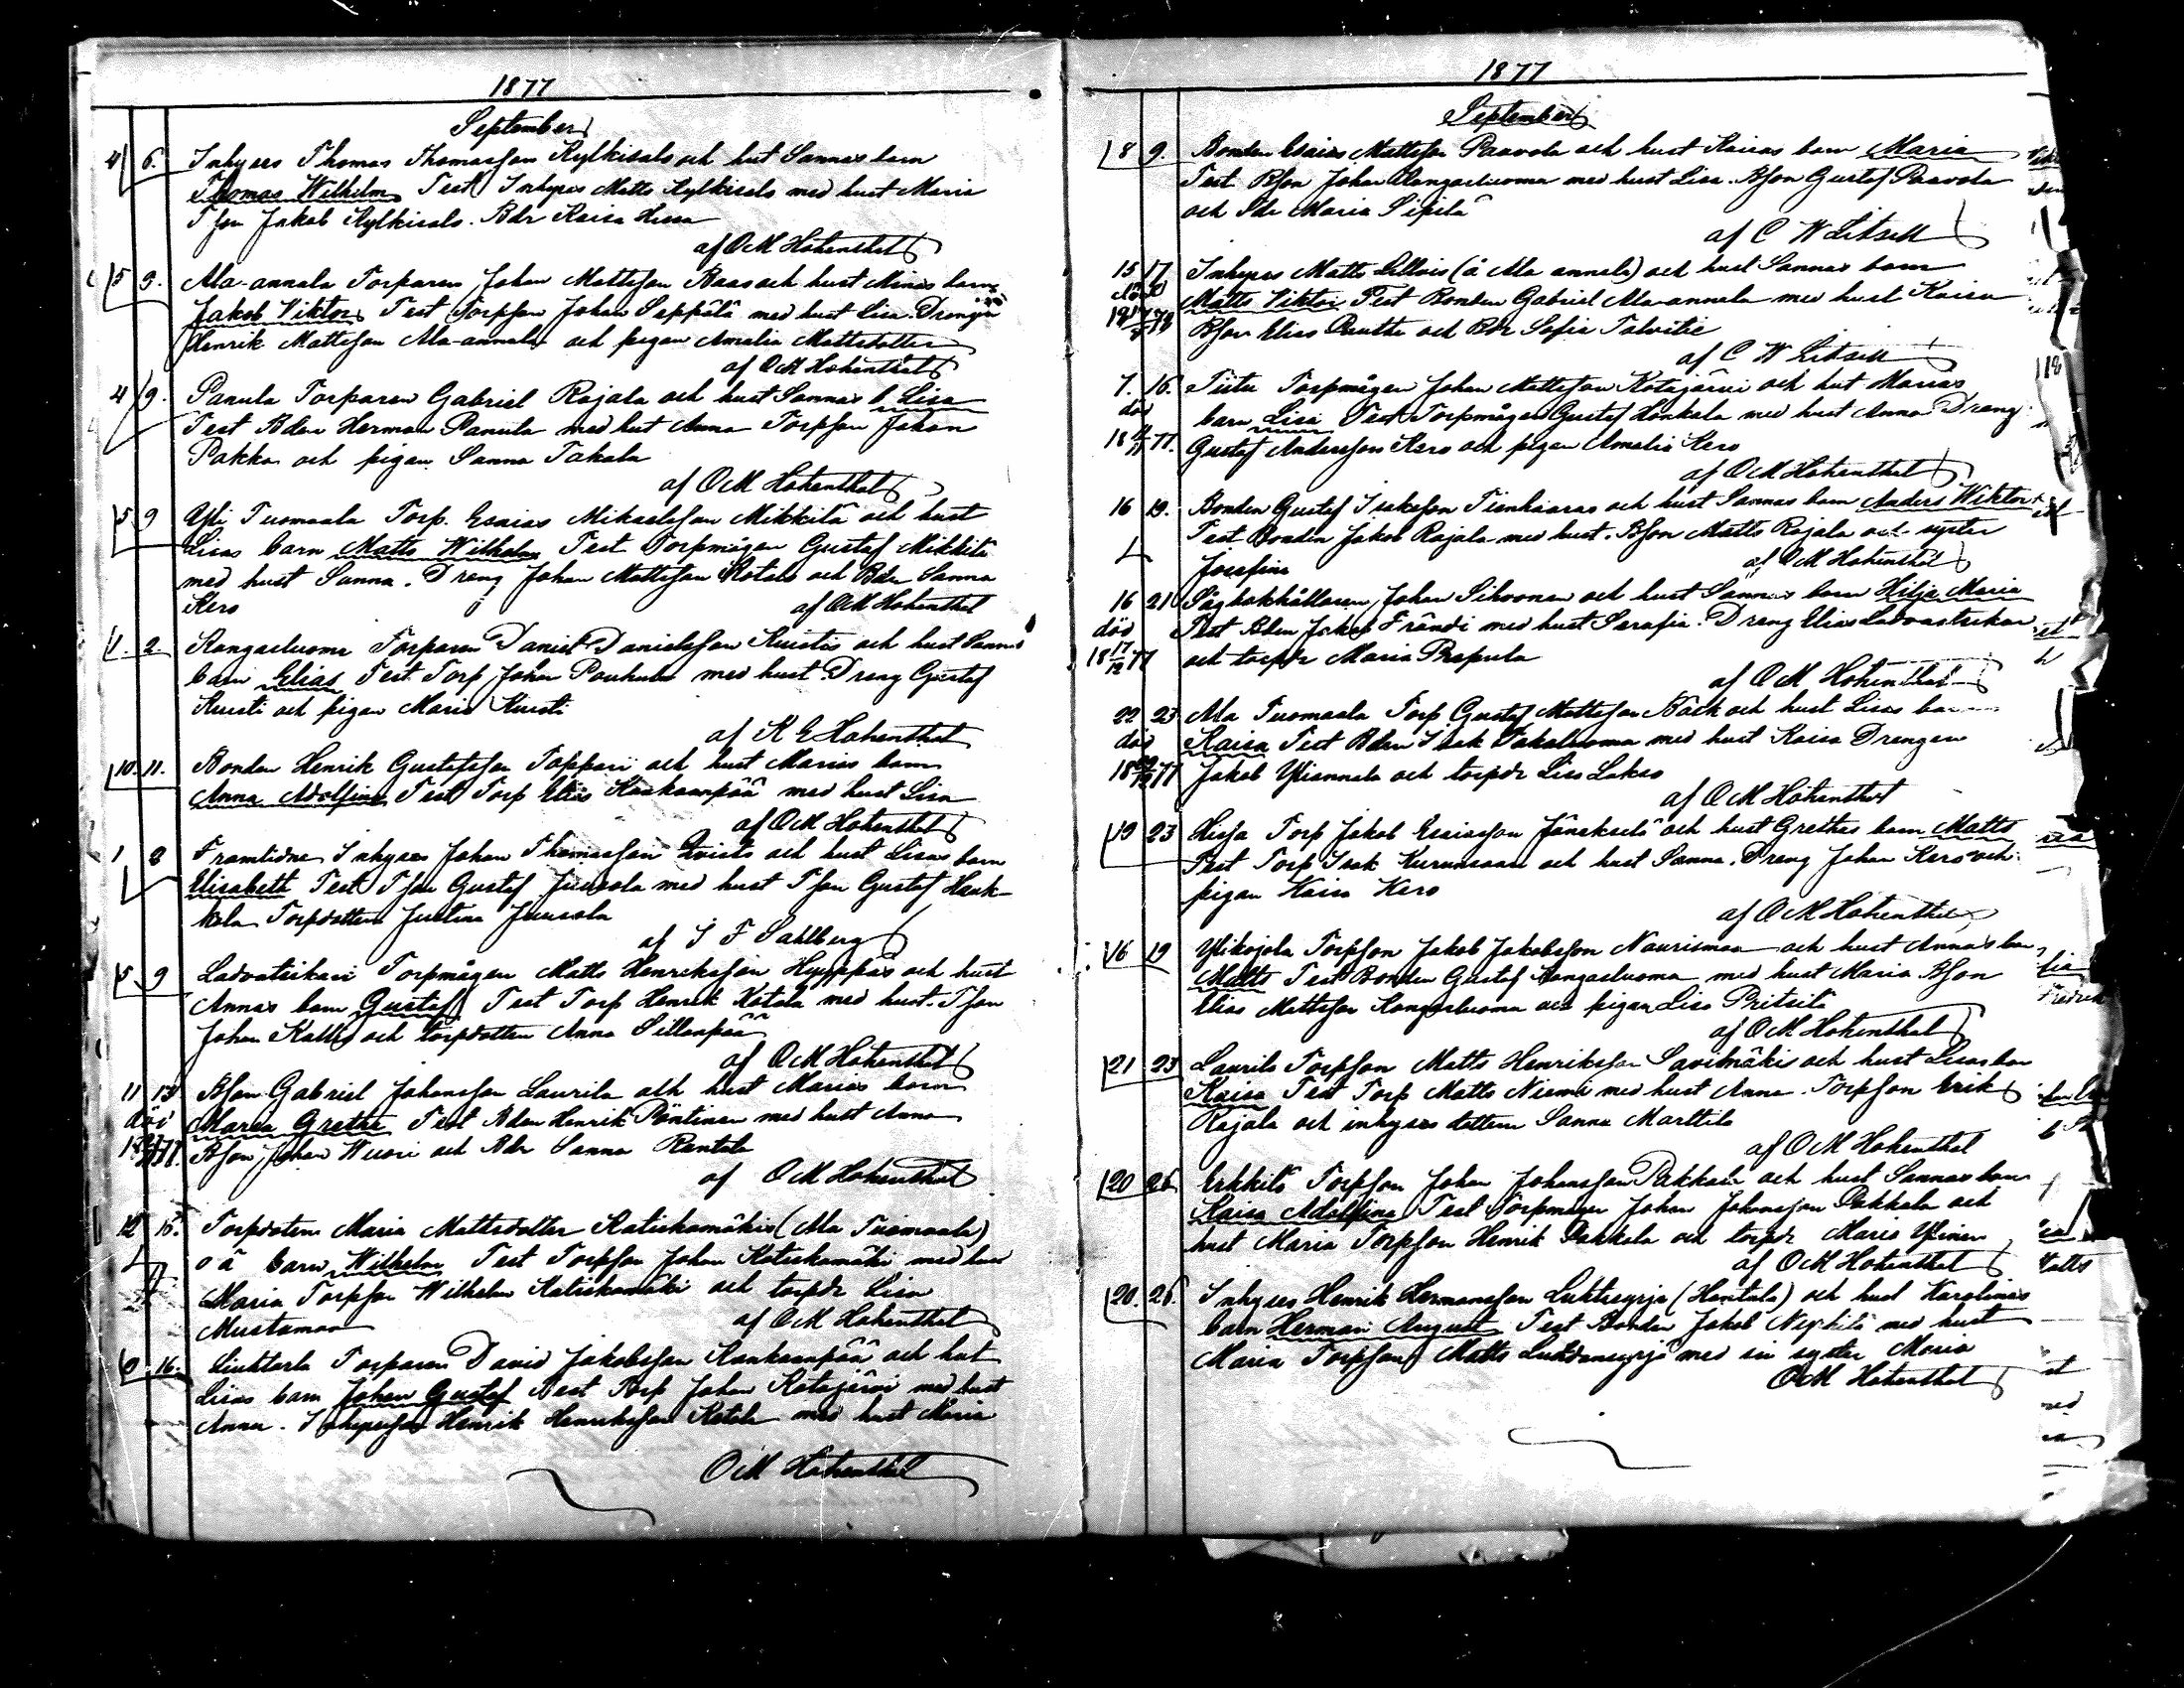 1877
September
4 6. Inhyses Thomas Thomasson Kylkisalo och hust Sannas barn
Thomas Wilhelm Test Inhyses Matts Kylkisalo med hust Maria
Tson Jakob Kylkisalo. Bdr Kaisa Hissa
af OM Hohenthal
5 9. Ala-annala Torparen Johan Mattsson Baas och hust Minas barn
Jakob Viktor Test Torpson Johan Seppälä med hust Lisa. Drengen
Henrik Mattsson Ala-annala och pigan Amalia Mattsdotter
af OM Hohenthal
4 9. Panula Torparen Gabriel Rajala och hust Sannas b. Lisa
Test Bden Herman Panula med hust Anna Torpson Johan
Pakka och pigan Sanna Takala
af OM Hohenthal
5 9 Yli Tuomaala Torp. Esaias Mikaelsson Mikkilä och hust
Lisas barn Matts Wilhelm Test Torpmågen Gustaf Mikkilä
med hust Sanna. Dreng Johan Mattsson Kotala och Bdr Sanna
Kero af OM Hohenthal
1. 2. Kangasluoma Torparen Daniel Danielsson Kuistis och hust Sannas
barn Elias Test Torp Johan Pouhula med hust. Dreng Gustaf
Kuisti och pigan Maria Kuisti
af K E Hohenthal
10. 11. Bonden Henrik Gustafsson Toppari och hust Marias barn
Anna Adolfina Test Torp Elias Kankaanpää med hust Lisa
af OM Hohenthal
1 2 Framlidne Inhyses Johan Thomasson Qvists och hust Lisas barn
Elisabeth Test Tson Gustaf Juusola med hust Tson Gustaf Hauk-
kala Torpdottern Justina Juusola
af I F Sahlberg
5 9 Ladvatsikari Torpmågen Matts Henriksson Hyppäs och hust
Annas barn Gustaf Test Torp Henrik Kotala med hust. Tson
Johan Kallio och torpdottern Anna Sillanpää
af OM Hohenthal
11 13 Bson Gabriel Johansson Laurila och hust Marias barn
död Maria Gretha Test Bden Henrik Pöntinen med hust Anna
77. Bson Johan Wuori och Bdr Sanna Rantala
af OM Hohenthal
12 15. Torpdottern Maria Mattsdotter Katiskamäkis (Ala Tuomaala)
o ä barn Wilhelm Test Torpson Johan Katiskamäki med hust
Maria Torpson Wilhelm Katiskamäki och torpdr Lisa
Mustamaa af OM Hohenthal
9 16. Liuhtarla Torparen David Jakobsson Kankaanpää och hust
Lisas barn Johan Gustaf Test Torp Johan Kotajärvi med hust
Anna. Inhyseson Henrik Henriksson Kotala med hust Maria
OM Hohenthal
1877
September
8 9. Bonden Esaias Mattsson Paavola och hust Kaisas barn Maria
Test Bson Johan Kangasluoma med hust Lisa. Bson Gustaf Paavola
och Sdr Maria Sipilä
af C W Litzell
15 17 Inhyses Matts Lillvis (å Ala annala) och hust Sannas barn
död Matts Viktor Test Bonden Gabriel Ala-annala med hust Kaisa
78 Bson Elias Rautta och Bdr Sofia Talvitie
af C W Litzell
7. 16. Tiitu Torpmågen Johan Mattsson Kotajärvi och hust Marias
död barn Lisa Test Torpmågen Gustaf Honkala med hust Anna Dreng
77. Gustaf Andersson Kero och pigan Amalia Kero
af OM Hohenthal
16 19. Bonden Gustaf Isaksson Tienhaaras och hust Sannas barn Anders Wiktor
Test Bonden Jakob Rajala med hust. Bson Matts Rajala och syster
Josefina af OM Hohenthal
16 21 Sågbokhållaren Johan Sihvonen och hust Sannas barn Hilja Maria
död Test Bden Jakob Frändi med hust Serafia. Dreng Elias Ladvastsikari
18 17/12 77 och torpdr Maria Prepula
af OM Hohenthal
22 23 Ala Tuomaala Torp Gustaf Mattsson Bäck och hust Lisas barn
död Kaisa Test Bden Isak Takaluoma med hust Kaisa Drengen
77 Jakob Yliannala och torpdr Lisa Lakso
af OM Hohenthal
19 23 Hirja Torp Jakob Esaiasson Jänekselä och hust Grethas barn Matts
Test Torp Isak Kurunsaari och hust Sanna. Dreng Johan Kero och
pigan Kaisa Kero
af OM Hohenthal
16 19 Ylikojola Torpson Jakob Jakobsson Naurismaa och hust Annas barn
Matts Test Bonden Gustaf Kangasluoma med hust Maria Bson
Elias Mattsson Kangasluoma och pigan Lisa Pritsilä
af OM Hohenthal
21 23 Laurila Torpson Matts Henriksson Savilmäkis och hust Lisas barn
Kaisa Test Torp Matts Niemi med hust Anna. Torpson Erik
Rajala och inhyses dottern Sanna Marttila
af OM Hohenthal
20 26 Erkkilä Torpson Johan Johansson Pakkala och hust Sannas barn
Kaisa Adolfina Test Torpmågen Johan Johansson Pakkala och
hust Maria Torpson Henrik Pakkala och torpdr Maria Ylinen
af OM Hohenthal
20. 26. Inhyses Henrik Hermansson Luhtasyrjä (Hantula) och hust Karolinas
barn Herman August Test Bonden Jakob Neppilä med hust
Maria Torpson Matts Luhdansyrjä med sin syster Maria
OM Hohenthal